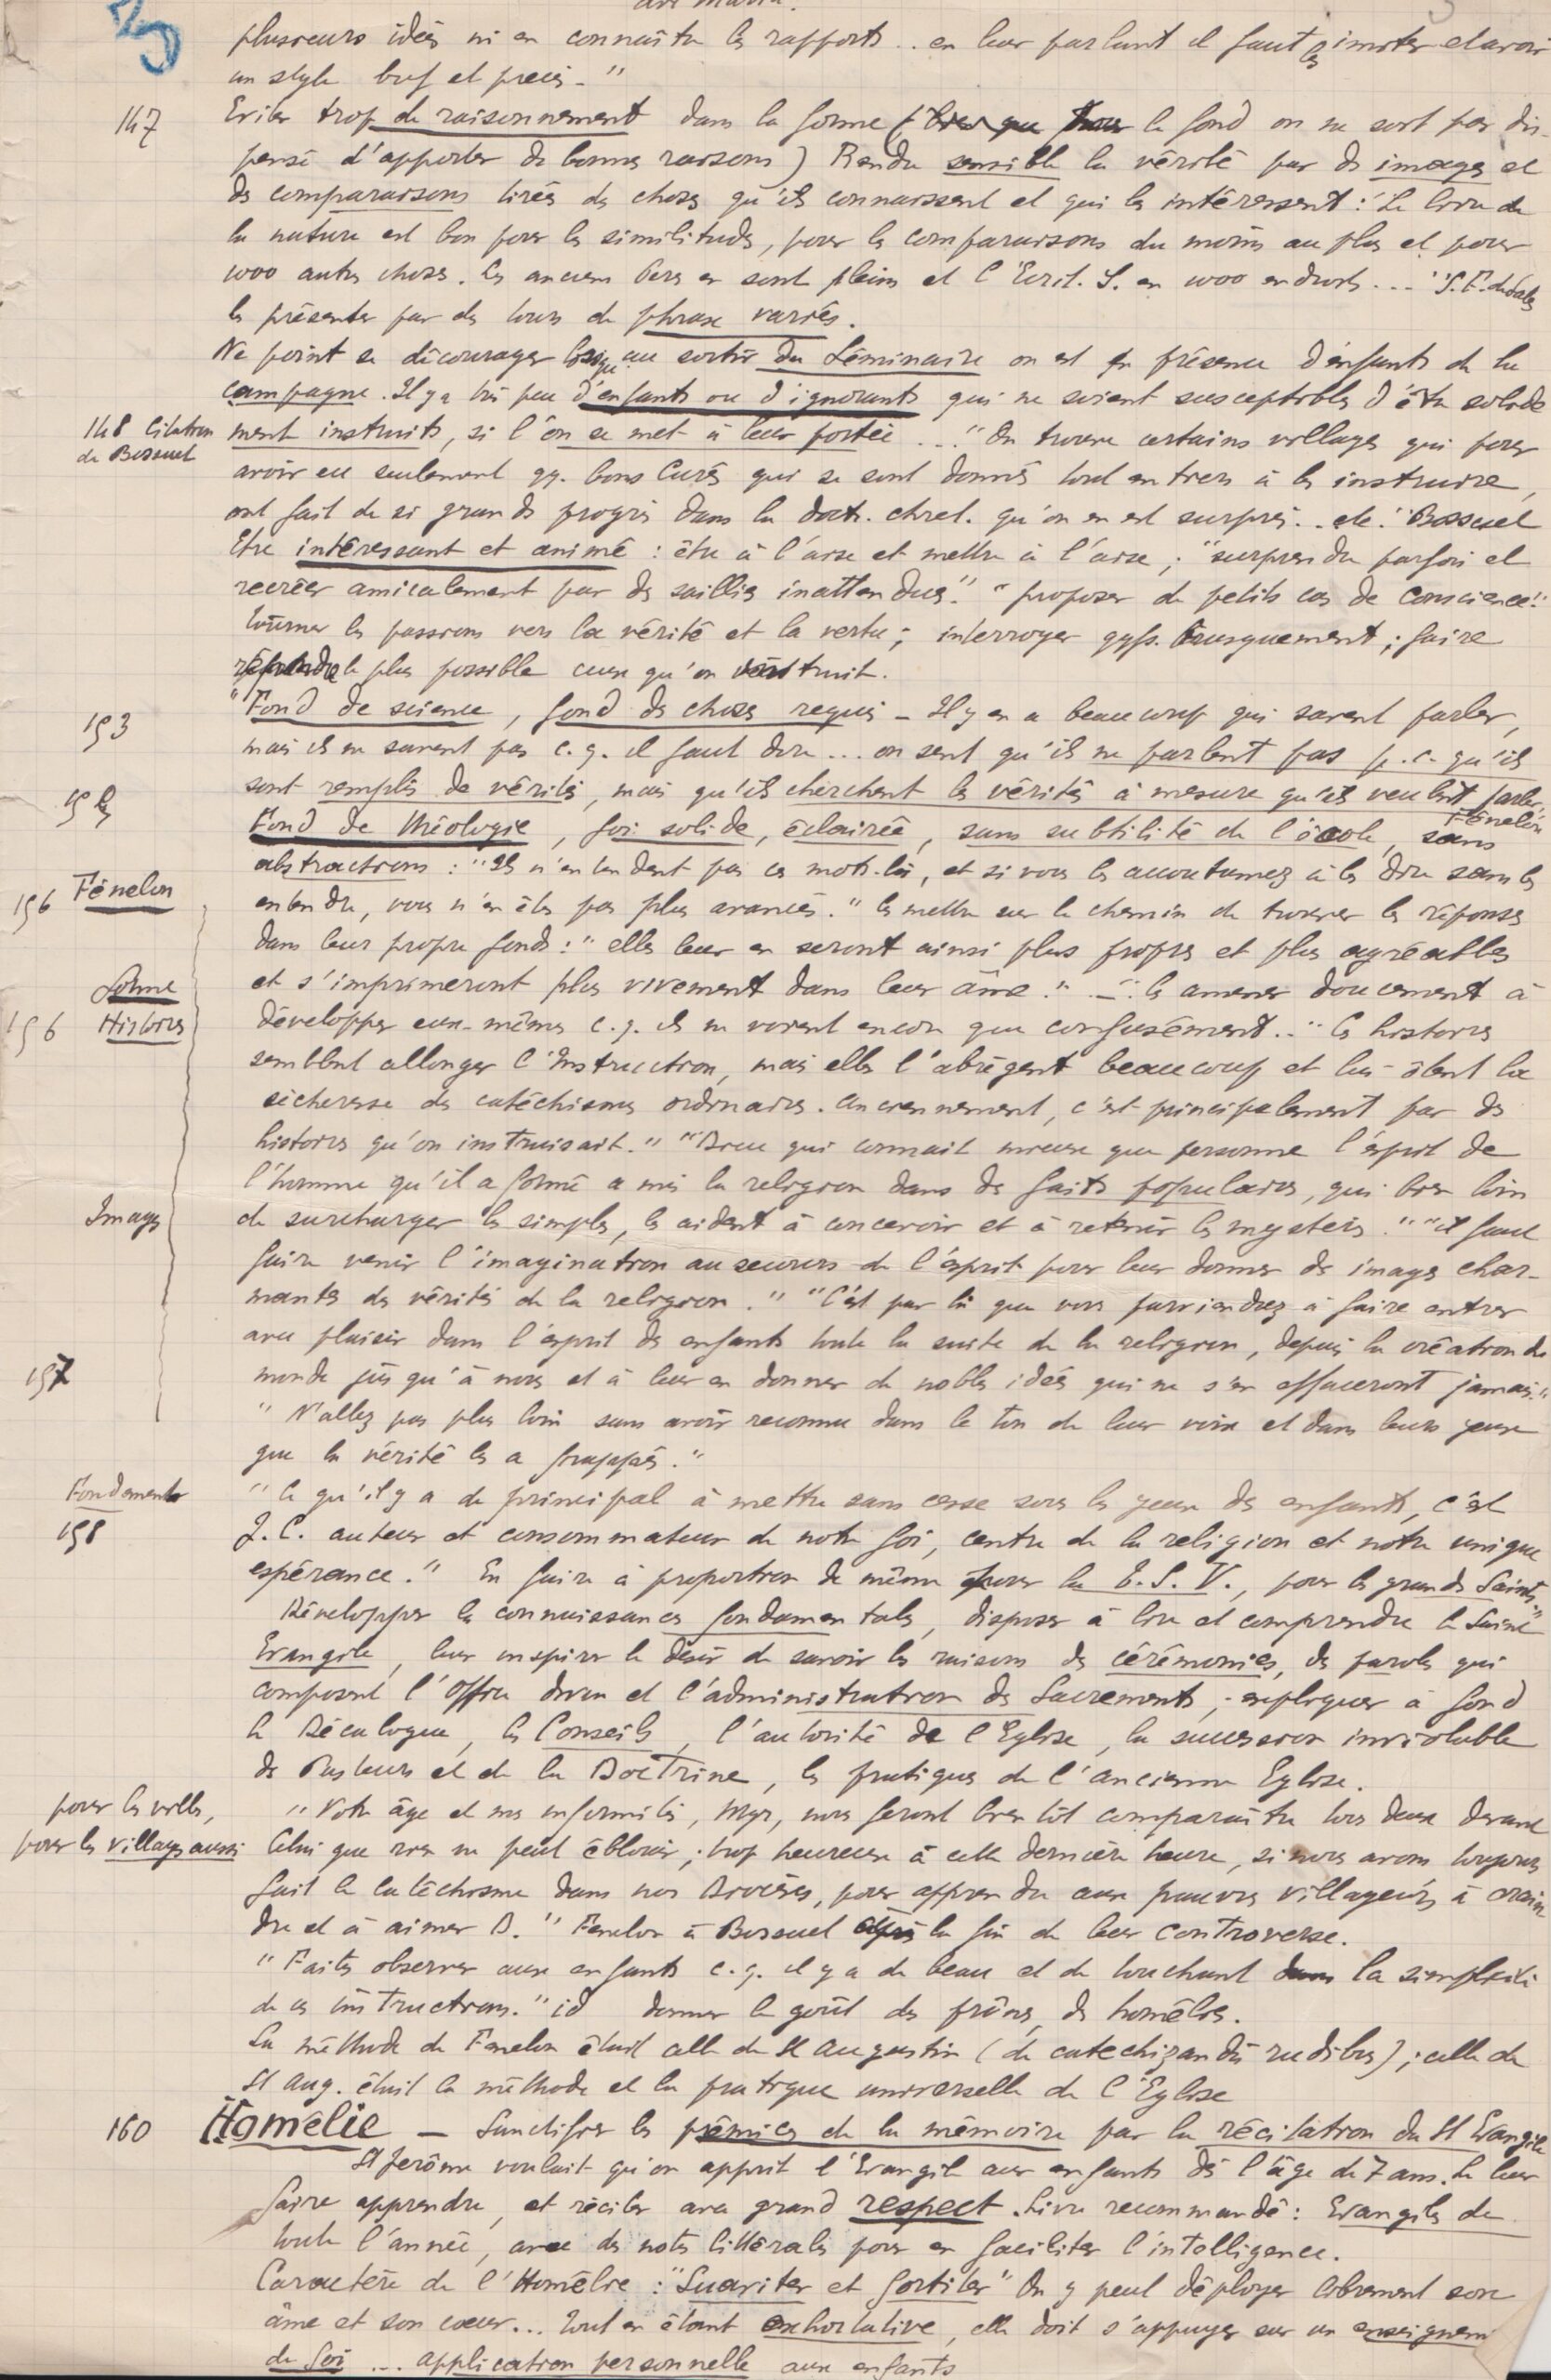 ave maria.
plusieurs idées ni en connaître les rapports .. en leur parlant il faut les imiter et avoir
un style bref et précis - "
147 Eviter trop de raisonnement dans la forme (bien que pour le fond on ne soit pas dis-
pensé d'apporter de bonnes raisons) Rendre sensible la vérité par des images et
des comparaisons tirées des choses qu'ils connaissent et qui les intéressent : "Le livre de
la nature est bon pour les similitudes, pour les comparaisons du moins au plus et pour
1000 autres choses. Les anciens Pères en sont pleins et l'Ecrit. S. en 1000 endroits ... " S. F. de Sales
les présenter par des tours de phrase variés.
Ne point se décourager lorsqu'au sortir du Séminaire on est en présence d'enfants de la
campagne. Il y a très peu d'enfants ou d'ignorants qui ne soient susceptibles d'être solide
148 Citation de Bossuet
ment instruits, si l'on se met à leur portée ... " On trouve certains villages qui pour
avoir eu seulement qq. bons Curés qui se sont donnés tout entiers à les instruire,
ont fait de si grands progrès dans la doct. chrét. qu'on en est surpris .. etc." Bossuet
Etre intéressant et animé : être à l'aise et mettre à l'aise ; "surprendre parfois et
recréer amicalement par des saillies inattendues." "proposer de petits cas de conscience"
tourner les passions vers la vérité et la vertu ; interroger qqfs. brusquement ; faire
répondre le plus possible ceux qu'on instruit.
153 "Fond de science, fond de choses requis - Il y en a beaucoup qui savent parler,
mais ils ne savent pas c. q. il faut dire ... on sent qu'ils ne parlent pas p. c. qu'ils
sont remplis de vérités, mais qu'ils cherchent les vérités à mesure qu'ils veulent parler." Fénelon
Fond de théologie, foi solide, éclairée, sans subtilité de l'école, sans
abstractions : "Ils n'entendent pas ces mots-là, et si vous les accoutumez à les dire sans les
156 Fénelon
entendre, vous n'en êtes pas plus avancés." les mettre sur le chemin de trouver les réponses
dans leur propre fonds : "elles leur en seront ainsi plus propres et plus agréables
Forme
et s'imprimeront plus vivement dans leur âme." - "les amener doucement à
156 Histoires
développer eux-mêmes c. q. ils ne voient encore que confusément .. " les histoires
semblent allonger l'instruction, mais elles l'abrègent beaucoup et lui ôtent la
sécheresse des catéchismes ordinaires. Anciennement, c'est principalement par des
histoires qu'on instruisait." "Dieu qui connaît mieux que personne l'esprit de
l'homme qu'il a formé a mis la religion dans des faits populaires, qui bien loin
Images
de surcharger les simples, les aident à concevoir et à retenir les mystères." "il faut
faire venir l'imagination au secours de l'esprit pour leur donner des images char-
mantes des vérités de la religion." "C'est par là que vous parviendrez à faire entrer
avec plaisir dans l'esprit des enfants toute la suite de la religion, depuis la création du
157
monde jusqu'à nous et à leur en donner de nobles idées qui ne s'en effaceront jamais."
" N'allez pas plus loin sans avoir reconnu dans le ton de leur voix et dans leurs yeux
que la vérité les a frappés."
Fondements
" Ce qu'il y a de principal à mettre sans cesse sous les yeux des enfants, c'est
158
J. C. auteur et consommateur de notre foi, centre de la religion et notre unique
espérance." En faire à proportion de même pour la T. S. V., pour les grands Saints."
Développer les connaissances fondamentales, disposer à lire et comprendre le Saint
Evangile, leur inspirer le désir de savoir les raisons des cérémonies, des paroles qui
composent l'Office divin et l'administration des Sacrements ; expliquer à fond
le Décalogue, les Conseils, l'autorité de l'Eglise, la succession inviolable
des Pasteurs et de la Doctrine, les pratiques de l'ancienne Eglise.
pour les villes,
" Votre âge et mes infirmités, Mgr, nous feront bientôt comparaître tous deux devant
pour les villages aussi
Celui que rien ne peut éblouir ; trop heureux à cette dernière heure, si nous avons toujours
fait le catéchisme dans nos Diocèses, pour apprendre aux pauvres villageois à crain
dre et à aimer D. " Fénelon à Bossuet après la fin de leur controverse.
" Faites observer aux enfants c. q. il y a de beau et de touchant dans la simplicité
de ces instructions." id donner le goût des prônes, des homélies.
La méthode de Fénelon était celle de St Augustin (de catechizandis rudibus) ; celle de
St Aug. était la méthode et la pratique universelle de l'Eglise
160 Homélie - Sanctifier les prémices de la mémoire par la récitation du St Evangile
St Jérôme voulait qu'on apprit l'Evangile aux enfants dès l'âge de 7 ans. Le leur
faire apprendre, et réciter avec grand respect. Livre recommandé : Evangiles de
toute l'année, avec des notes littérales pour en faciliter l'intelligence.
Caractère de l'Homélie : "Suaviter et fortiter" On y peut déployer librement son
âme et son cœur ... tout en étant exhortative, elle doit s'appuyer sur un enseignem
de foi ... application personnelle aux enfants